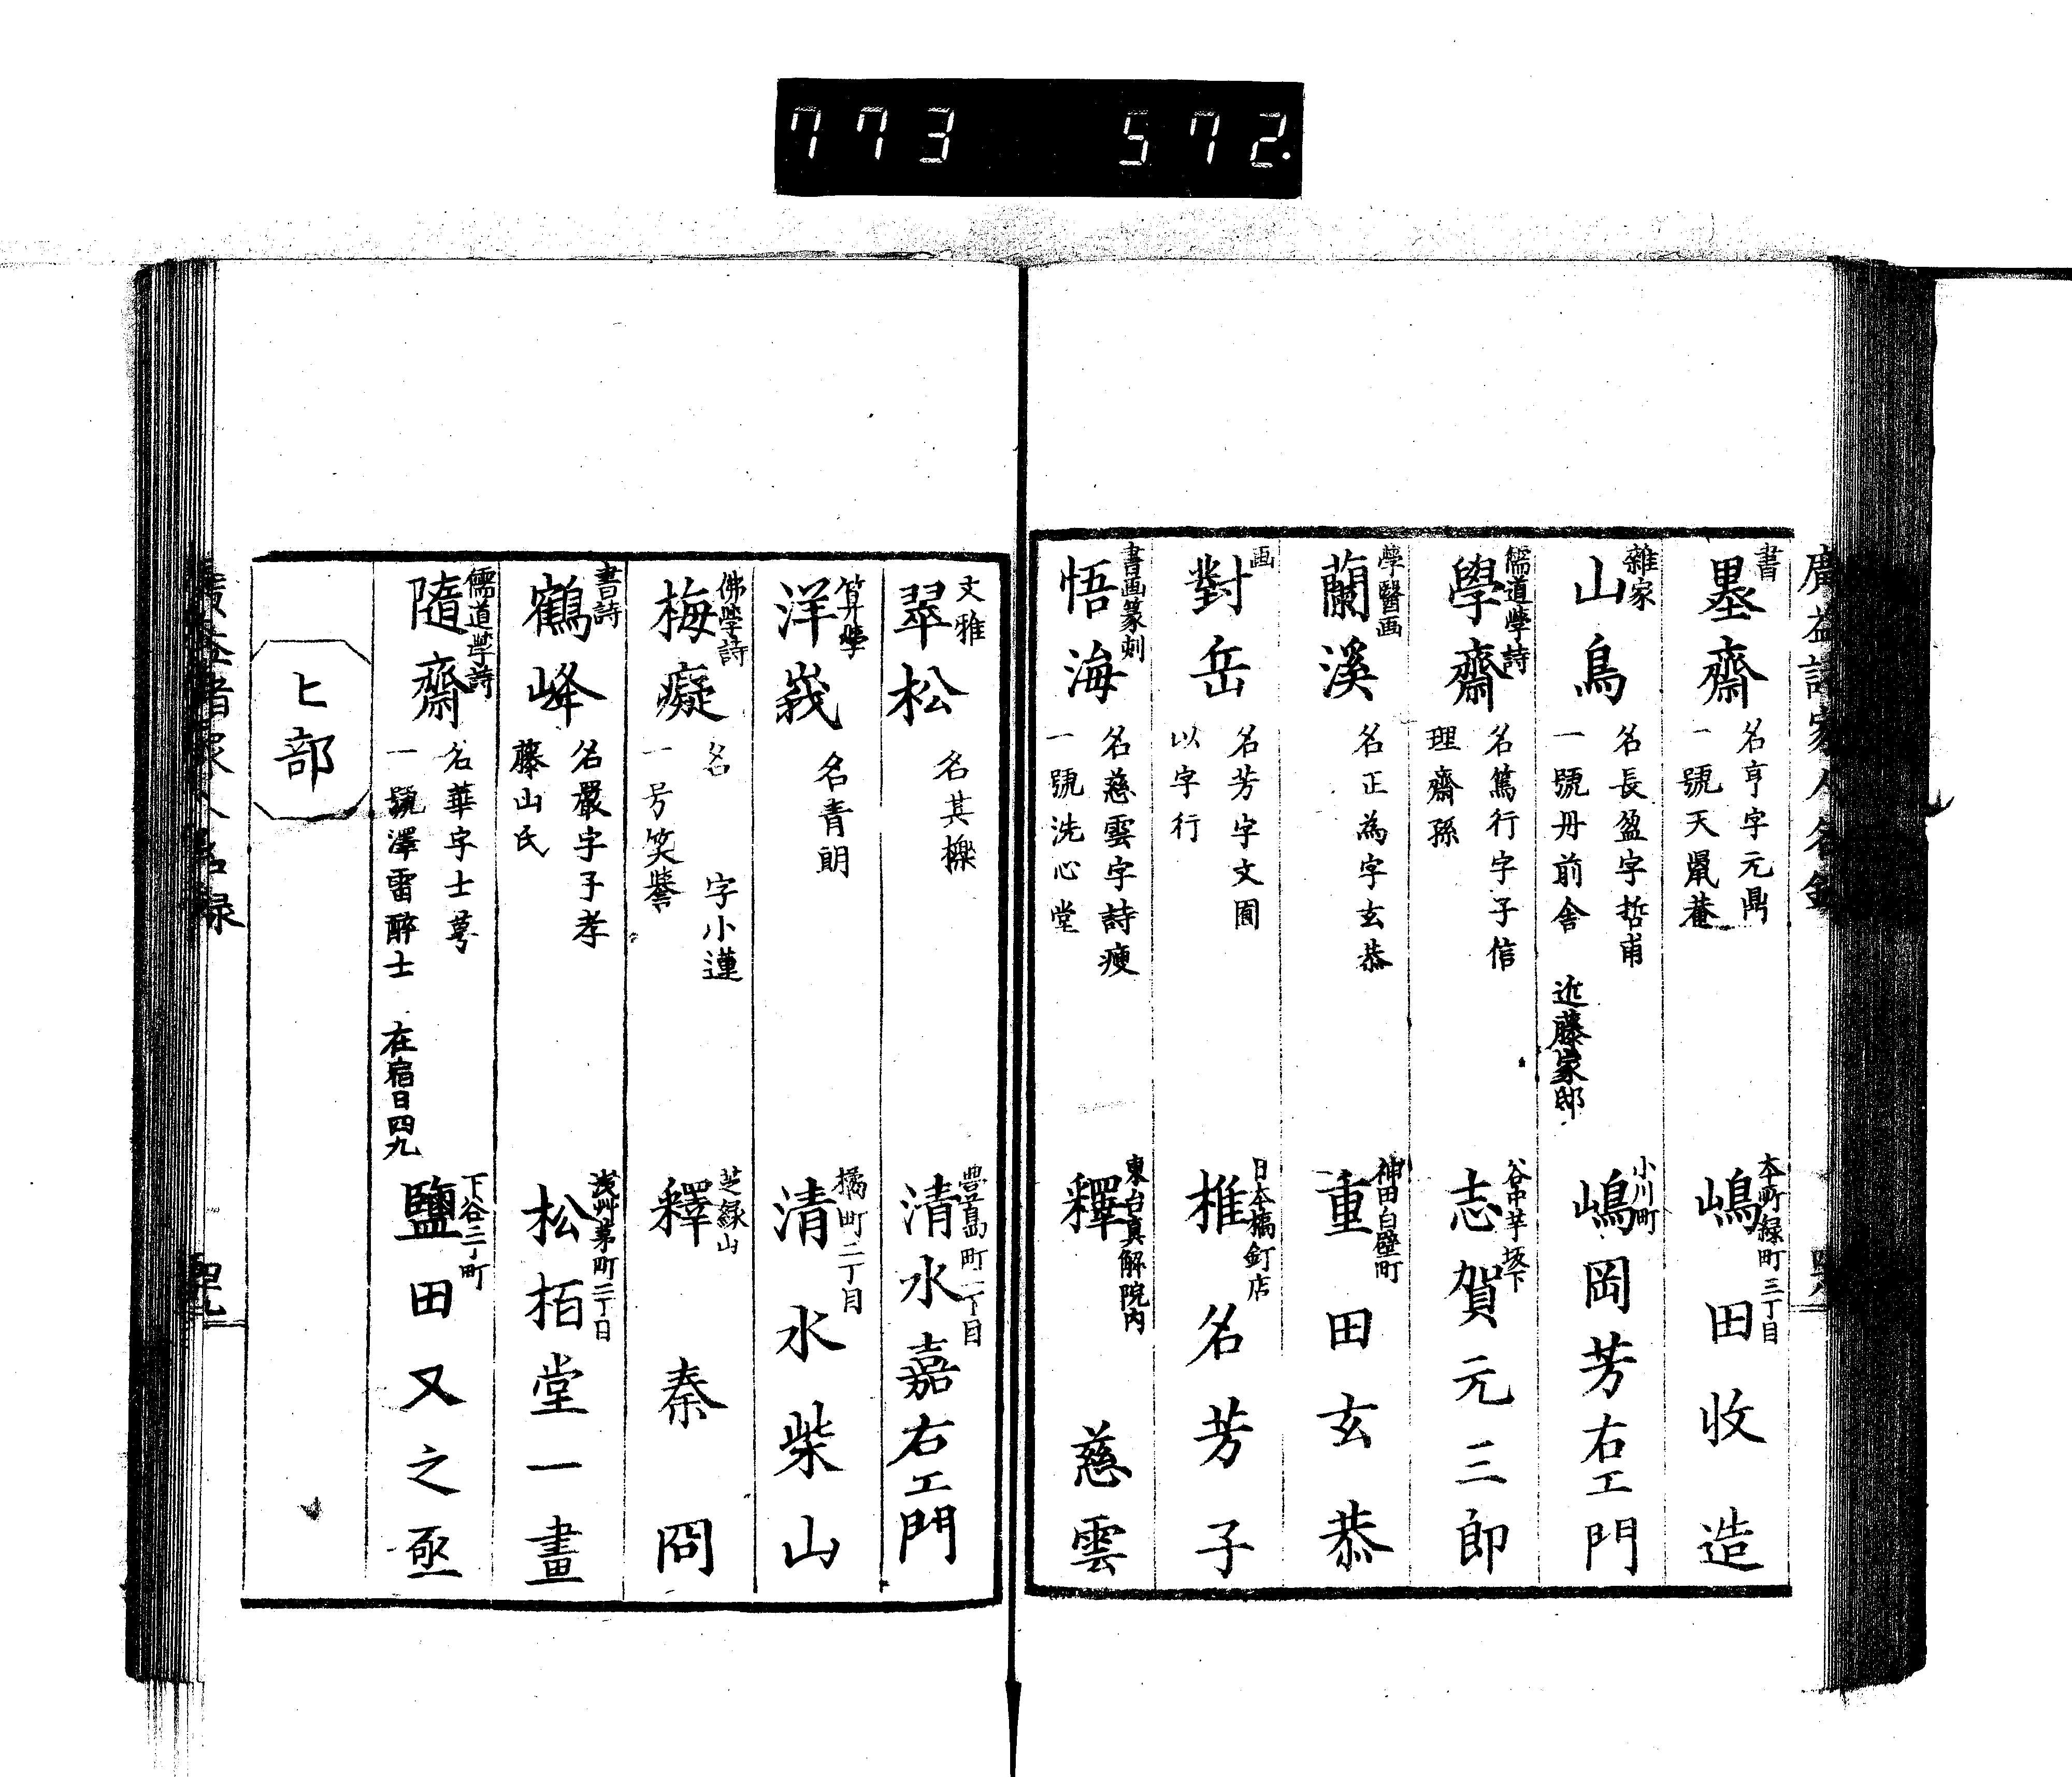 773 572.
書
墨齋
名亨字元鼎
一號天鼠菴
本町緑町三丁目
嶋田收造
雜家
山鳥
名長盈字哲甫
一號丹前舎 近藤家邸
小川町
嶋岡芳右エ門
儒道學詩
學齋
名篤行字子信
理齋孫
谷中芋坂下
志賀元三郎
學醫画
蘭溪
名正為字玄恭
神田白壁町
重田玄恭
画
對岳
名芳字文囿
以字行
日本橋釘店
椎名芳子
書画篆刻
悟海
名慈雲字詩瘦
一號洗心堂
東台真解院内
釋 慈雲
文雅
翠松
名其櫟
豊島町一丁目
清水嘉右エ門
算學
洋峩
名青朗
橘町二丁目
清水柴山
佛學詩
梅癡
名 字小蓮
一号笑誉
芝緑山
釋 秦冏
書詩
鶴峰
名嚴字子孝
藤山氏
浅艸茅町二丁目
松栢堂一畫
儒道學詩
隨齋
名華字士萼
一號澤雷醉士 在宿日四九
下谷二丁町
鹽田又之丞
ヒ部